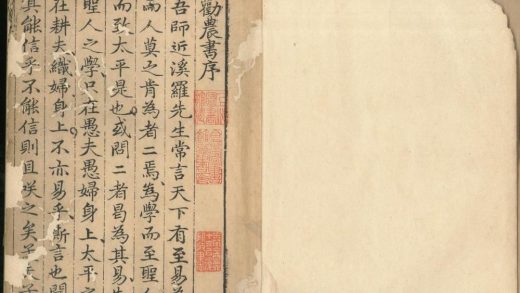 勸農書序
吾師近溪羅先生常言天下有至易
而人莫之肯為者二焉為學而至聖人
而致太平是也或問二者曷為其易
聖人之學只在愚夫愚婦身上太平之
在耕夫織婦身上不亦易乎斯言也聞
其能信乎不能信則且咲之矣